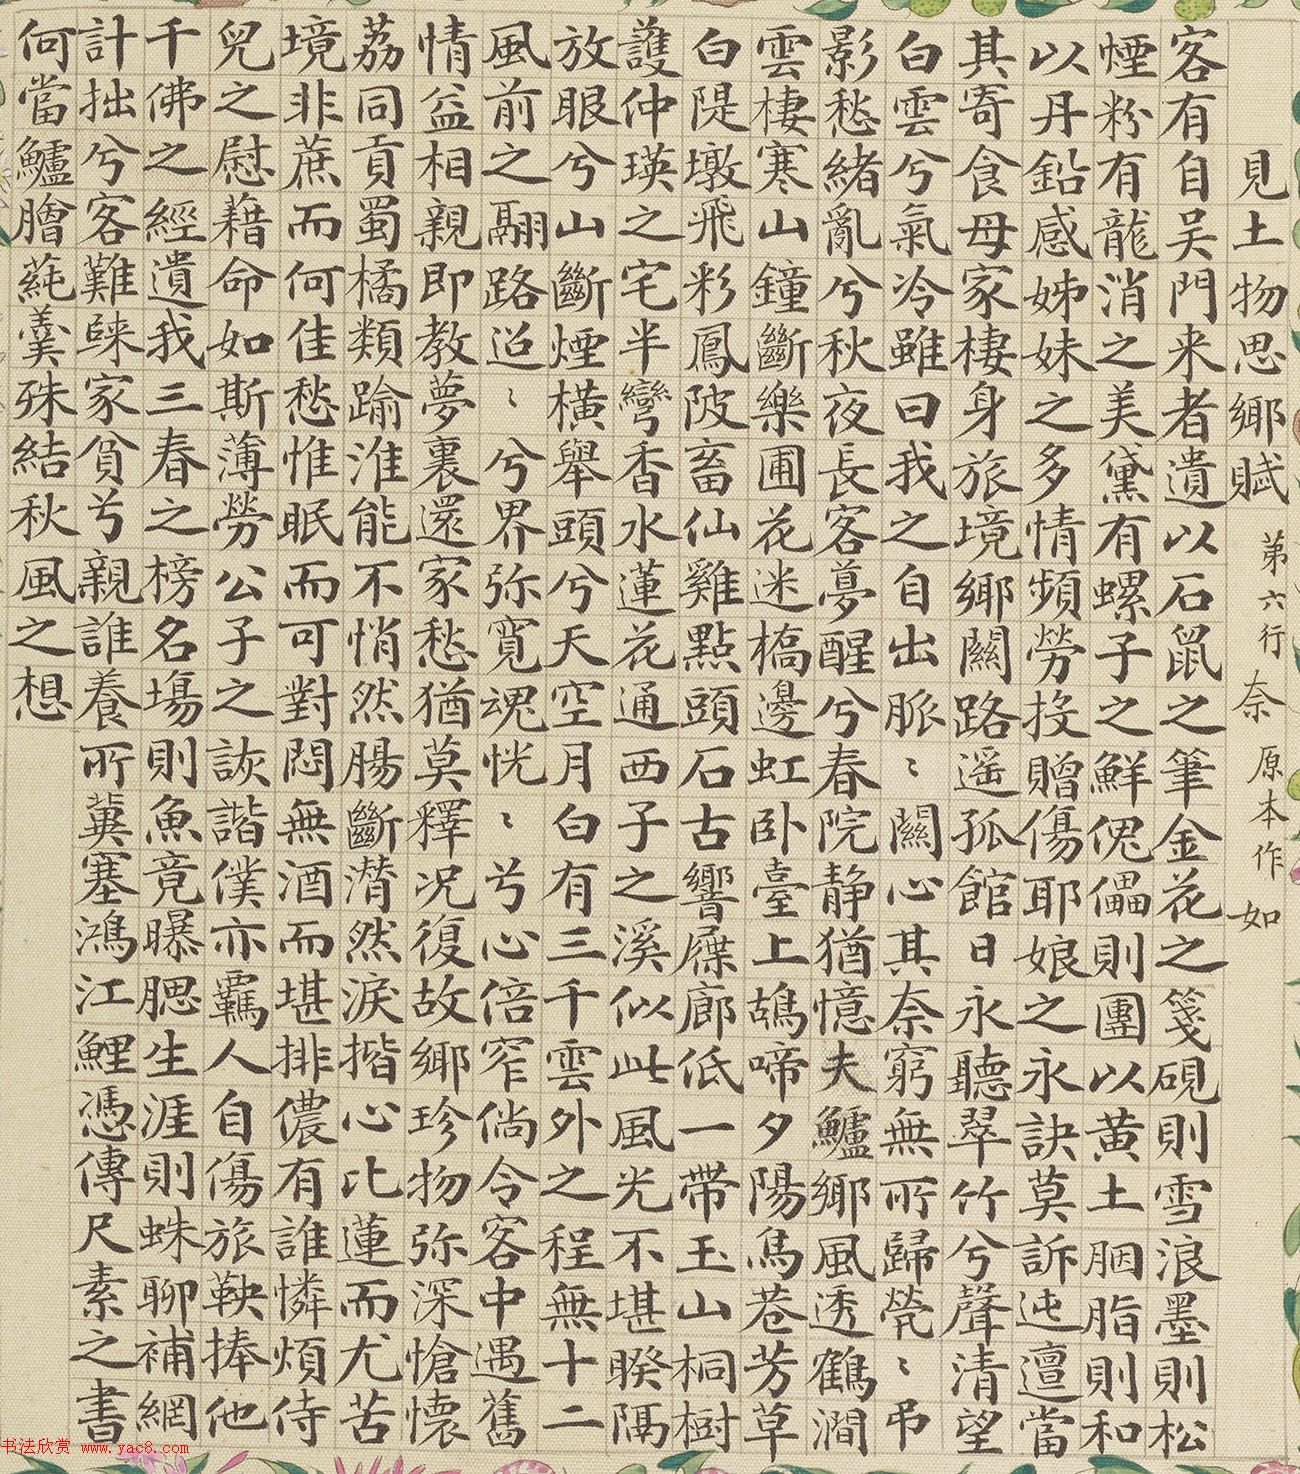 見土物思鄉賦 第六行 奈 原本作 如
客有自吴門来者遺以石鼠之筆金花之箋硯則雪浪墨則松
煙粉有龍消之美黛有螺子之鮮傀儡則團以黄土胭脂則和
以丹鉛感姊妹之多情頻勞投贈傷耶娘之永訣莫訴迍邅當
其寄食母家棲身旅境鄉關路遥孤館日永聽翠竹兮聲清望
白雲兮氣冷雖曰我之自出脈〻關心其奈窮無所歸煢〻弔
影愁緒亂兮秋夜長客夢醒兮春院静猶憶夫鱸鄉風透鶴澗
雲棲寒山鐘斷樂圃花迷橋邊虹卧臺上鴣啼夕陽烏巷芳草
白隄墩飛彩鳳陂畜仙雞點頭石古響屧廊低一帶玉山桐樹
護仲瑛之宅半彎香水蓮花通西子之溪似此風光不堪睽隔
放眼兮山斷煙横舉頭兮天空月白有三千雲外之程無十二
風前之翮路迢〻兮界弥寬魂恍〻兮心倍窄倘令客中遇舊
情益相親即教夢裏還家愁猶莫釋况復故鄉珍物弥深愴懐
荔同貢蜀橘類踰淮能不悄然腸斷潸然淚揩心比蓮而尤苦
境非蔗而何佳愁惟眠而可對悶無酒而堪排儂有誰憐煩侍
兒之慰藉命如斯薄勞公子之詼諧僕亦羈人自傷旅鞅捧他
千佛之經遺我三春之榜名塲則魚竟曝腮生涯則蛛聊補網
計拙兮客難睐家貧兮親誰養所冀塞鴻江鯉憑傳尺素之書
何當鱸膾蒓羹殊結秋風之想
书法欣赏 www.yac8.com